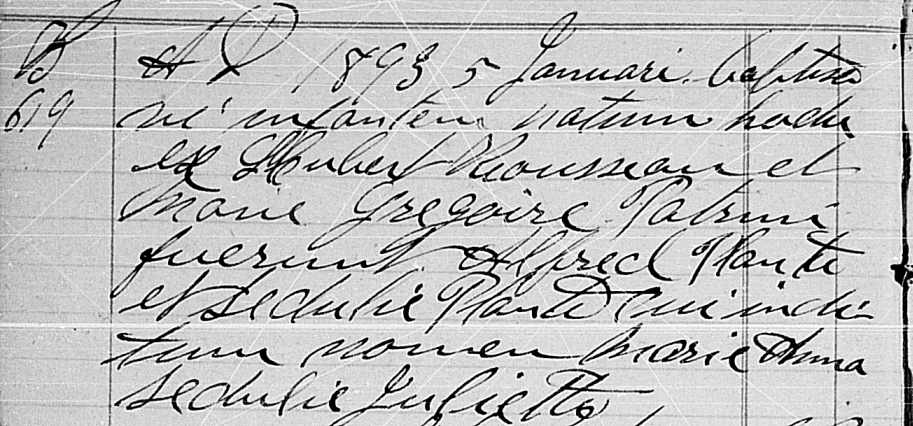 B
619
A D 1893 5 Januari baptisa
vi infantem natum hodie
ex Hubert Rousseau et
Marie Gregoire Patrini
fuerunt Alfred Plante
et Sedulie Plante cui indi
tum nomen Marie Anna
Sedulie Juliette